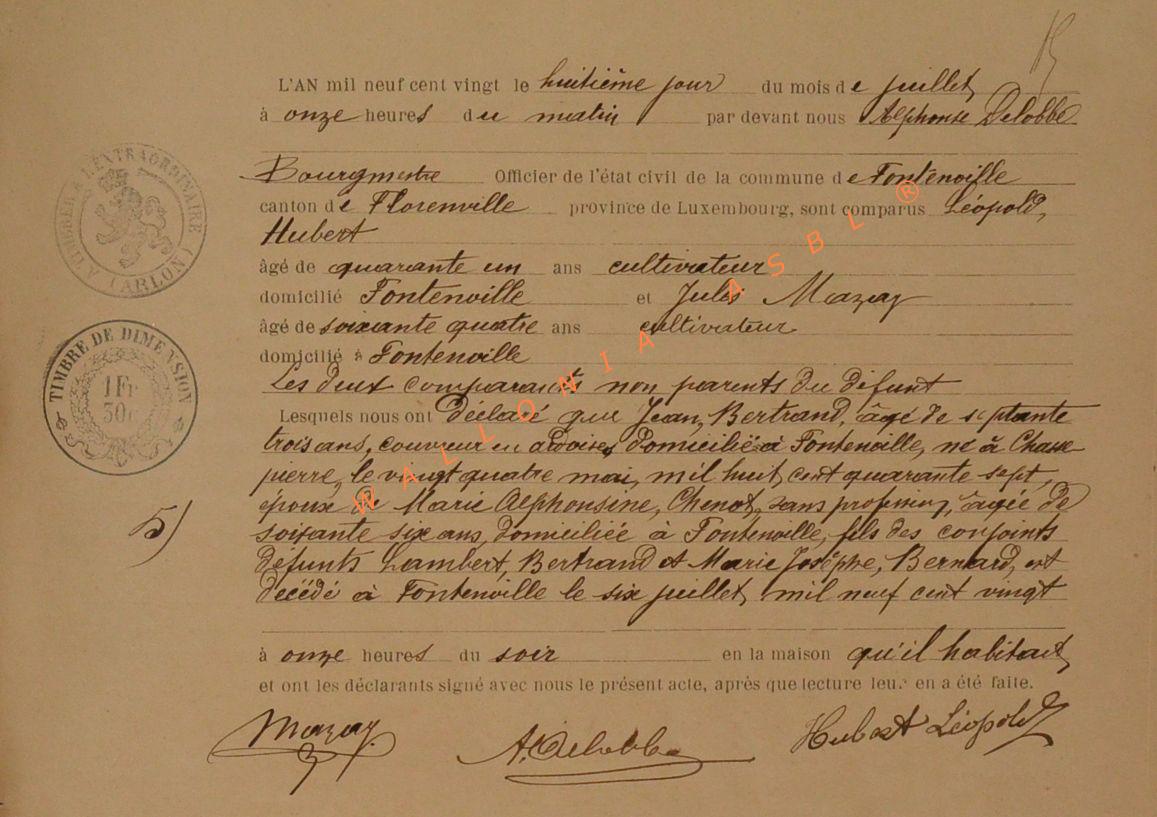 15
L'AN mil neuf cent vingt le huitième jour du mois de juillet,
à onze heures du matin par devant nous Alphonse Delobbe
Bourgmestre Officier de l'état civil de la commune de Fontenoille
canton de Florenville province de Luxembourg, sont comparus Léopold,
Hubert
âgé de quarante un ans cultivateur
domicilié Fontenoille et Jules Mazay
âgé de soixante quatre ans cultivateur
domicilié à Fontenoille
Les deux comparants non parents du défunt
Lesquels nous ont déclaré que Jean, Bertrand, âgé de septante
trois ans, couvreur en ardoises domicilié à Fontenoille, né à Chasse-
pierre, le vingt quatre mai, mil huit cent quarante sept,
époux de Marie Alphonsine, Chenot, sans profession, âgée de
soixante six ans, domiciliée à Fontenoille, fils des conjoints
défunts Lambert, Bertrand et Marie Josèphe, Bernard, est
décédé à Fontenoille le six juillet, mil neuf cent vingt
à onze heures du soir en la maison qu'il habitait,
et ont les déclarants signé avec nous le présent acte, après que lecture leur en a été faite.
Mazay.
A. Delobbe
Hubert Léopold
A TIMBRER A L'EXTRAORDINAIRE (N
(ARLON)
TIMBRE DE DIMENSION
1 Fr
50c
5)
WALLONIA ASBL ®